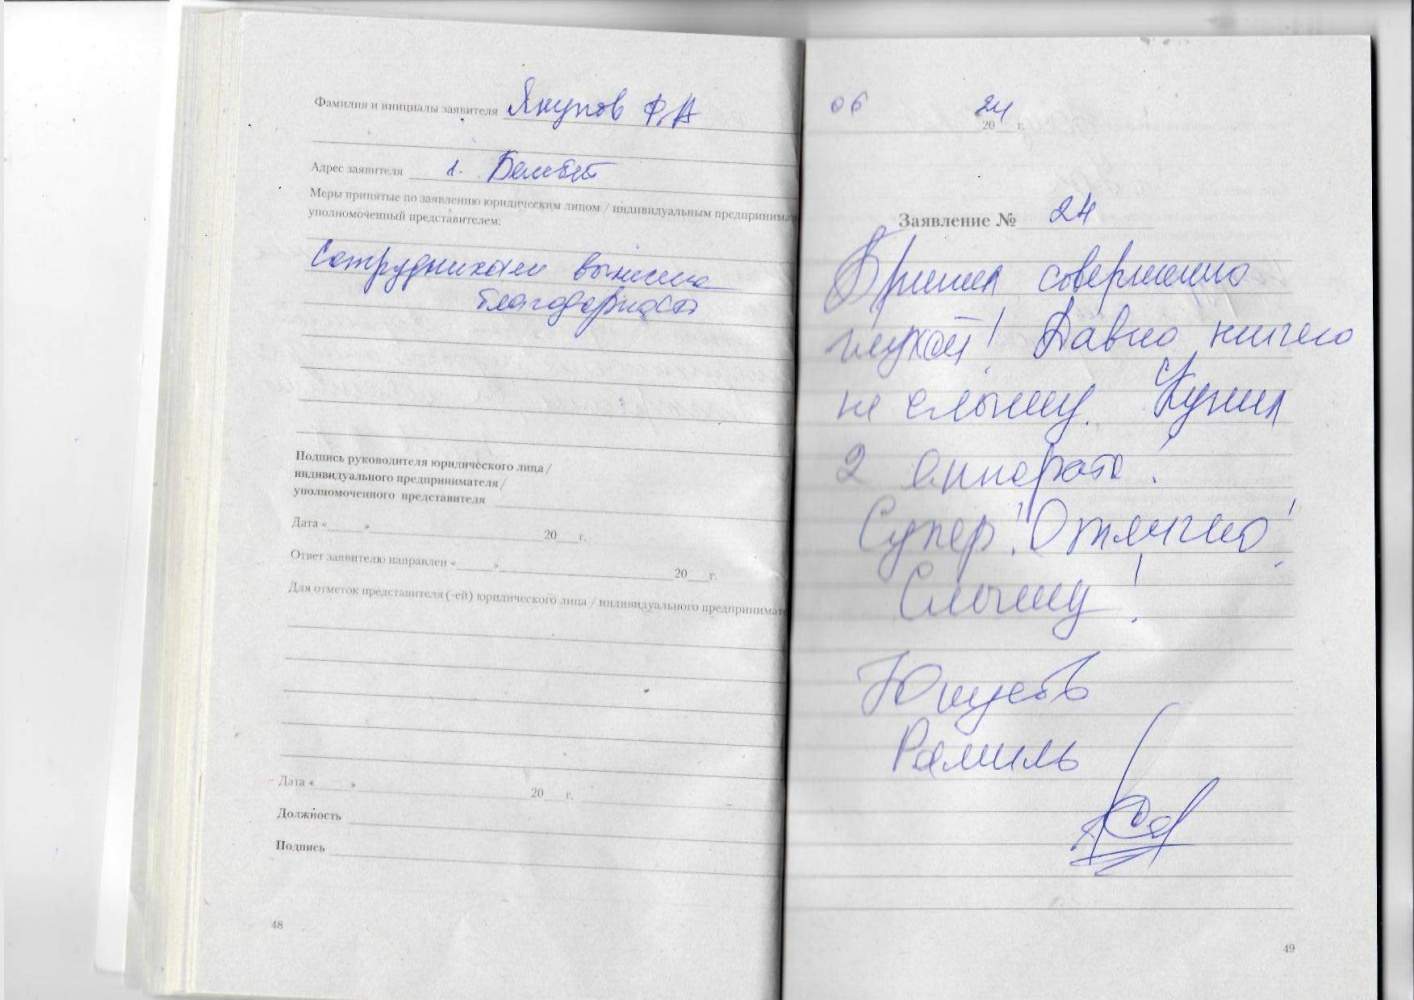 Фамилия и инициалы заявителя Якупов Ф.А
Адрес заявителя г.
Меры принятые по заявлению юридическим лицом / индивидуальным предпринима
уполномоченный представителем:
Сотрудникам вынесена
благодарность
Подпись руководителя юридического лица/
индивидуального предпринимателя/
уполномоченного представителя
Дата «____»____ 20___г.
Ответ заявителю направлен «____»____ 20___г.
Для отметок представителя (-ей) юридического лица / индивидуального предпринимате
Дата «____»____ 20___г.
Должность
Подпись
48
06 24
20 г.
Заявление № 24
Пришел совершенно
глухой! Давно ничего
не слышу. Купил
2 аппарата!
Супер! Отлично!
Слышу!
Рамиль
49